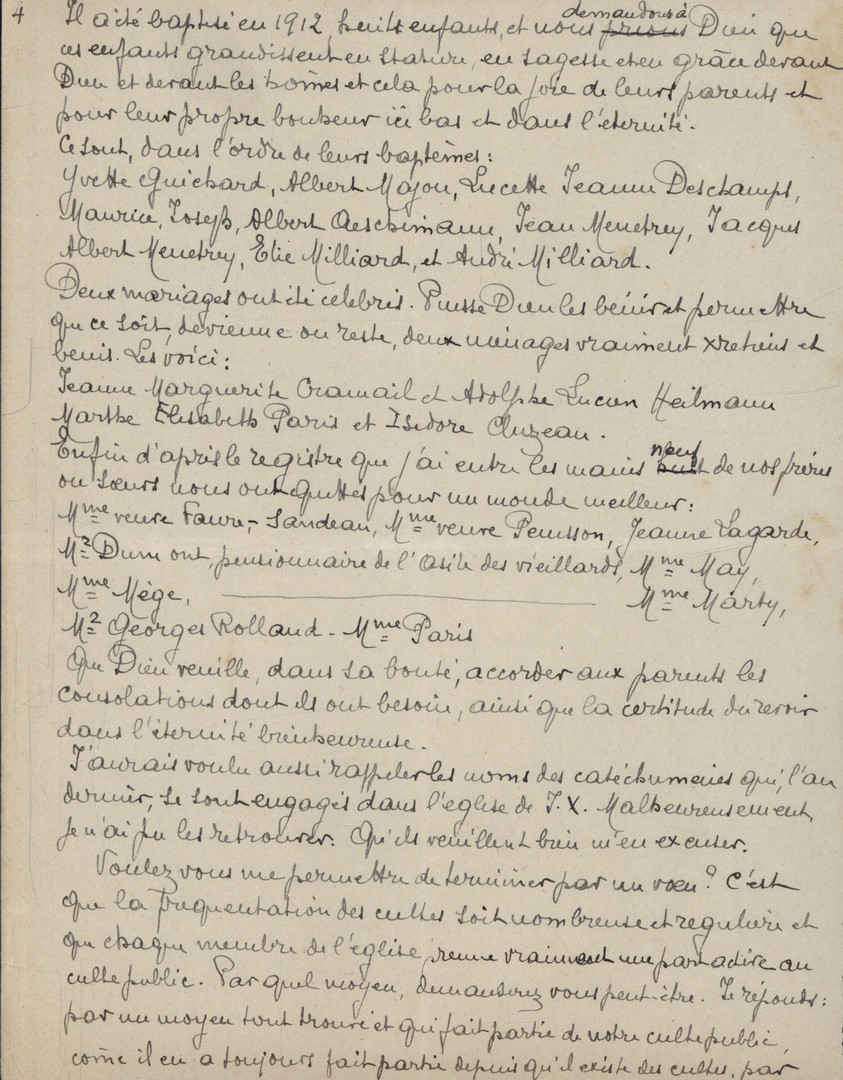 4
Il a été baptisé en 1912, huits enfants, et nous prions demandons à Dieu que
ces enfants grandissent en stature, en sagesse et en grâce devant
Dieu et devant les homes et cela pour la joie de leurs parents et
pour leur propre bonheur ici bas et dans l'éternité.
Ce sont, dans l'ordre de leurs baptêmes :
Yvette Guichard, Albert Majou, Lucette Jeanne Deschamps,
Maurice, Joseph, Albert Aeschimann, Jean Menetrey, Jacques
Albert Menetrey, Elie Milliard, et André Milliard.
Deux mariages ont été celebrés. Puisse Dieu les bénir et permettre
que ce soit, devienne ou reste, deux ménages vraiment xretiens et
benis. Les voici :
Jeanne Marguerite Cramail et Adolphe Lucien Heilmann
Marthe Elisabeth Paris et Isidore Cluzeau.
Enfin d'après le registre que j'ai entre les mains huit neuf de nos frères
ou sœurs nous ont quittés pour un monde meilleur :
Mme veuve Faure-Landeau, Mme veuve Penisson, Jeanne Lagarde,
Mr Dumont, pensionnaire de l'Asile des vieillards, Mme May,
Mme Mège, Mme Marty,
Mr Georges Rolland - Mme Paris
Que Dieu veuille, dans sa bonté, accorder aux parents les
consolations dont ils ont besoin, ainsi que la certitude du revoir
dans l'éternité bienheureuse.
J'aurais voulu aussi rappeler les noms des catéchumenes qui, l'an
dernier, se sont engagés dans l'eglise de J. X. Malheureusement,
je n'ai pu les retrouver. Qu'ils veuillent bien m'en excuser.
Voulez vous me permettre de terminer par un vœu ? C'est
que la frequentation des cultes soit nombreuse et reguliere et
que chaque membre de l'église prenne vraiment une part active au
culte public. Par quel moyen, demanderez vous peut-être. Je réponds :
par un moyen tout trouvé et qui fait partie de notre culte public,
come il en a toujours fait partie depuis qu'il existe des cultes, par